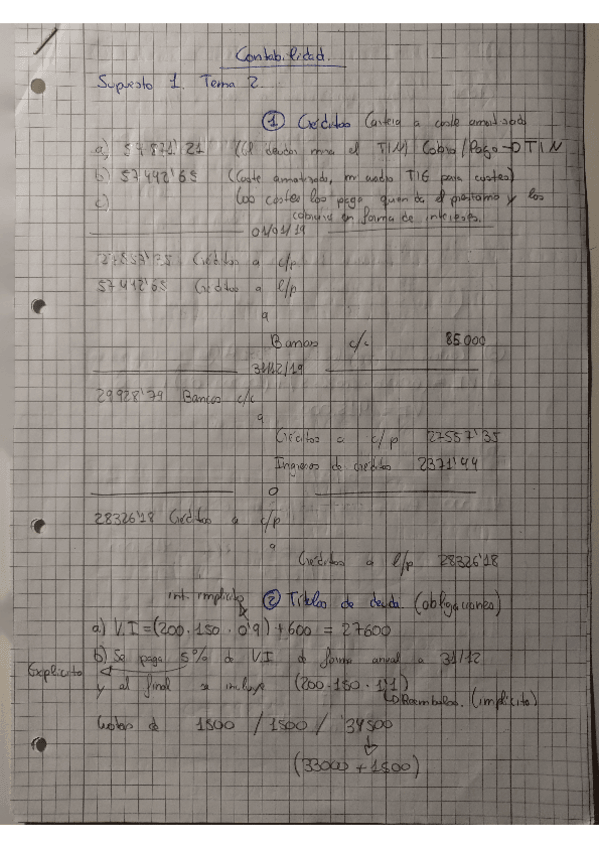 Contabilidad.
Supuesto 1. Tema 2.
① Créditos Cartera a coste amortizado
a) 57871'21 (El deudor mira el TIN) Cobro/Pago → TIN
b) 57442'65 (Coste amortizado, TIE para costes)
c) Los costes los paga quien da el préstamo y los
cobrará en forma de intereses.
01/01/19
27557'35 Créditos a c/p
57442'65 Créditos a l/p
a
Bancos c/c 85.000
31/12/19
29928'79 Bancos c/c
a
Créditos a c/p 27557'35
Ingresos de créditos 2371'44
0
28326'18 Créditos a c/p
a
Créditos a l/p 28326'18
int. implícito ② Títulos de deuda (obligaciones)
a) V.I = (200 · 150 · 0'9) + 600 = 27600
b) Se paga 5% de V.I de forma anual a 31/12
Explícito
y al final se incluye (200 · 150 · 1'1)
Reembolso. (implícito)
Cuotas de 1500 / 1500 / 34500
(33000 + 1500)